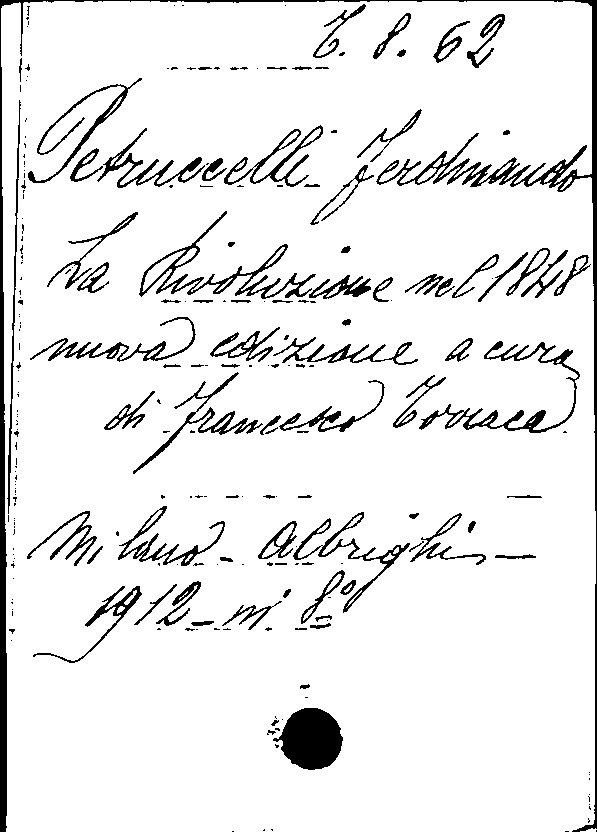 T. 8. 62
Petruccelli Ferdinando
La Rivoluzione nel 1848
nuova edizione a cura
di Francesco Torraca
Milano - Albrighi -
1912 - in 8º